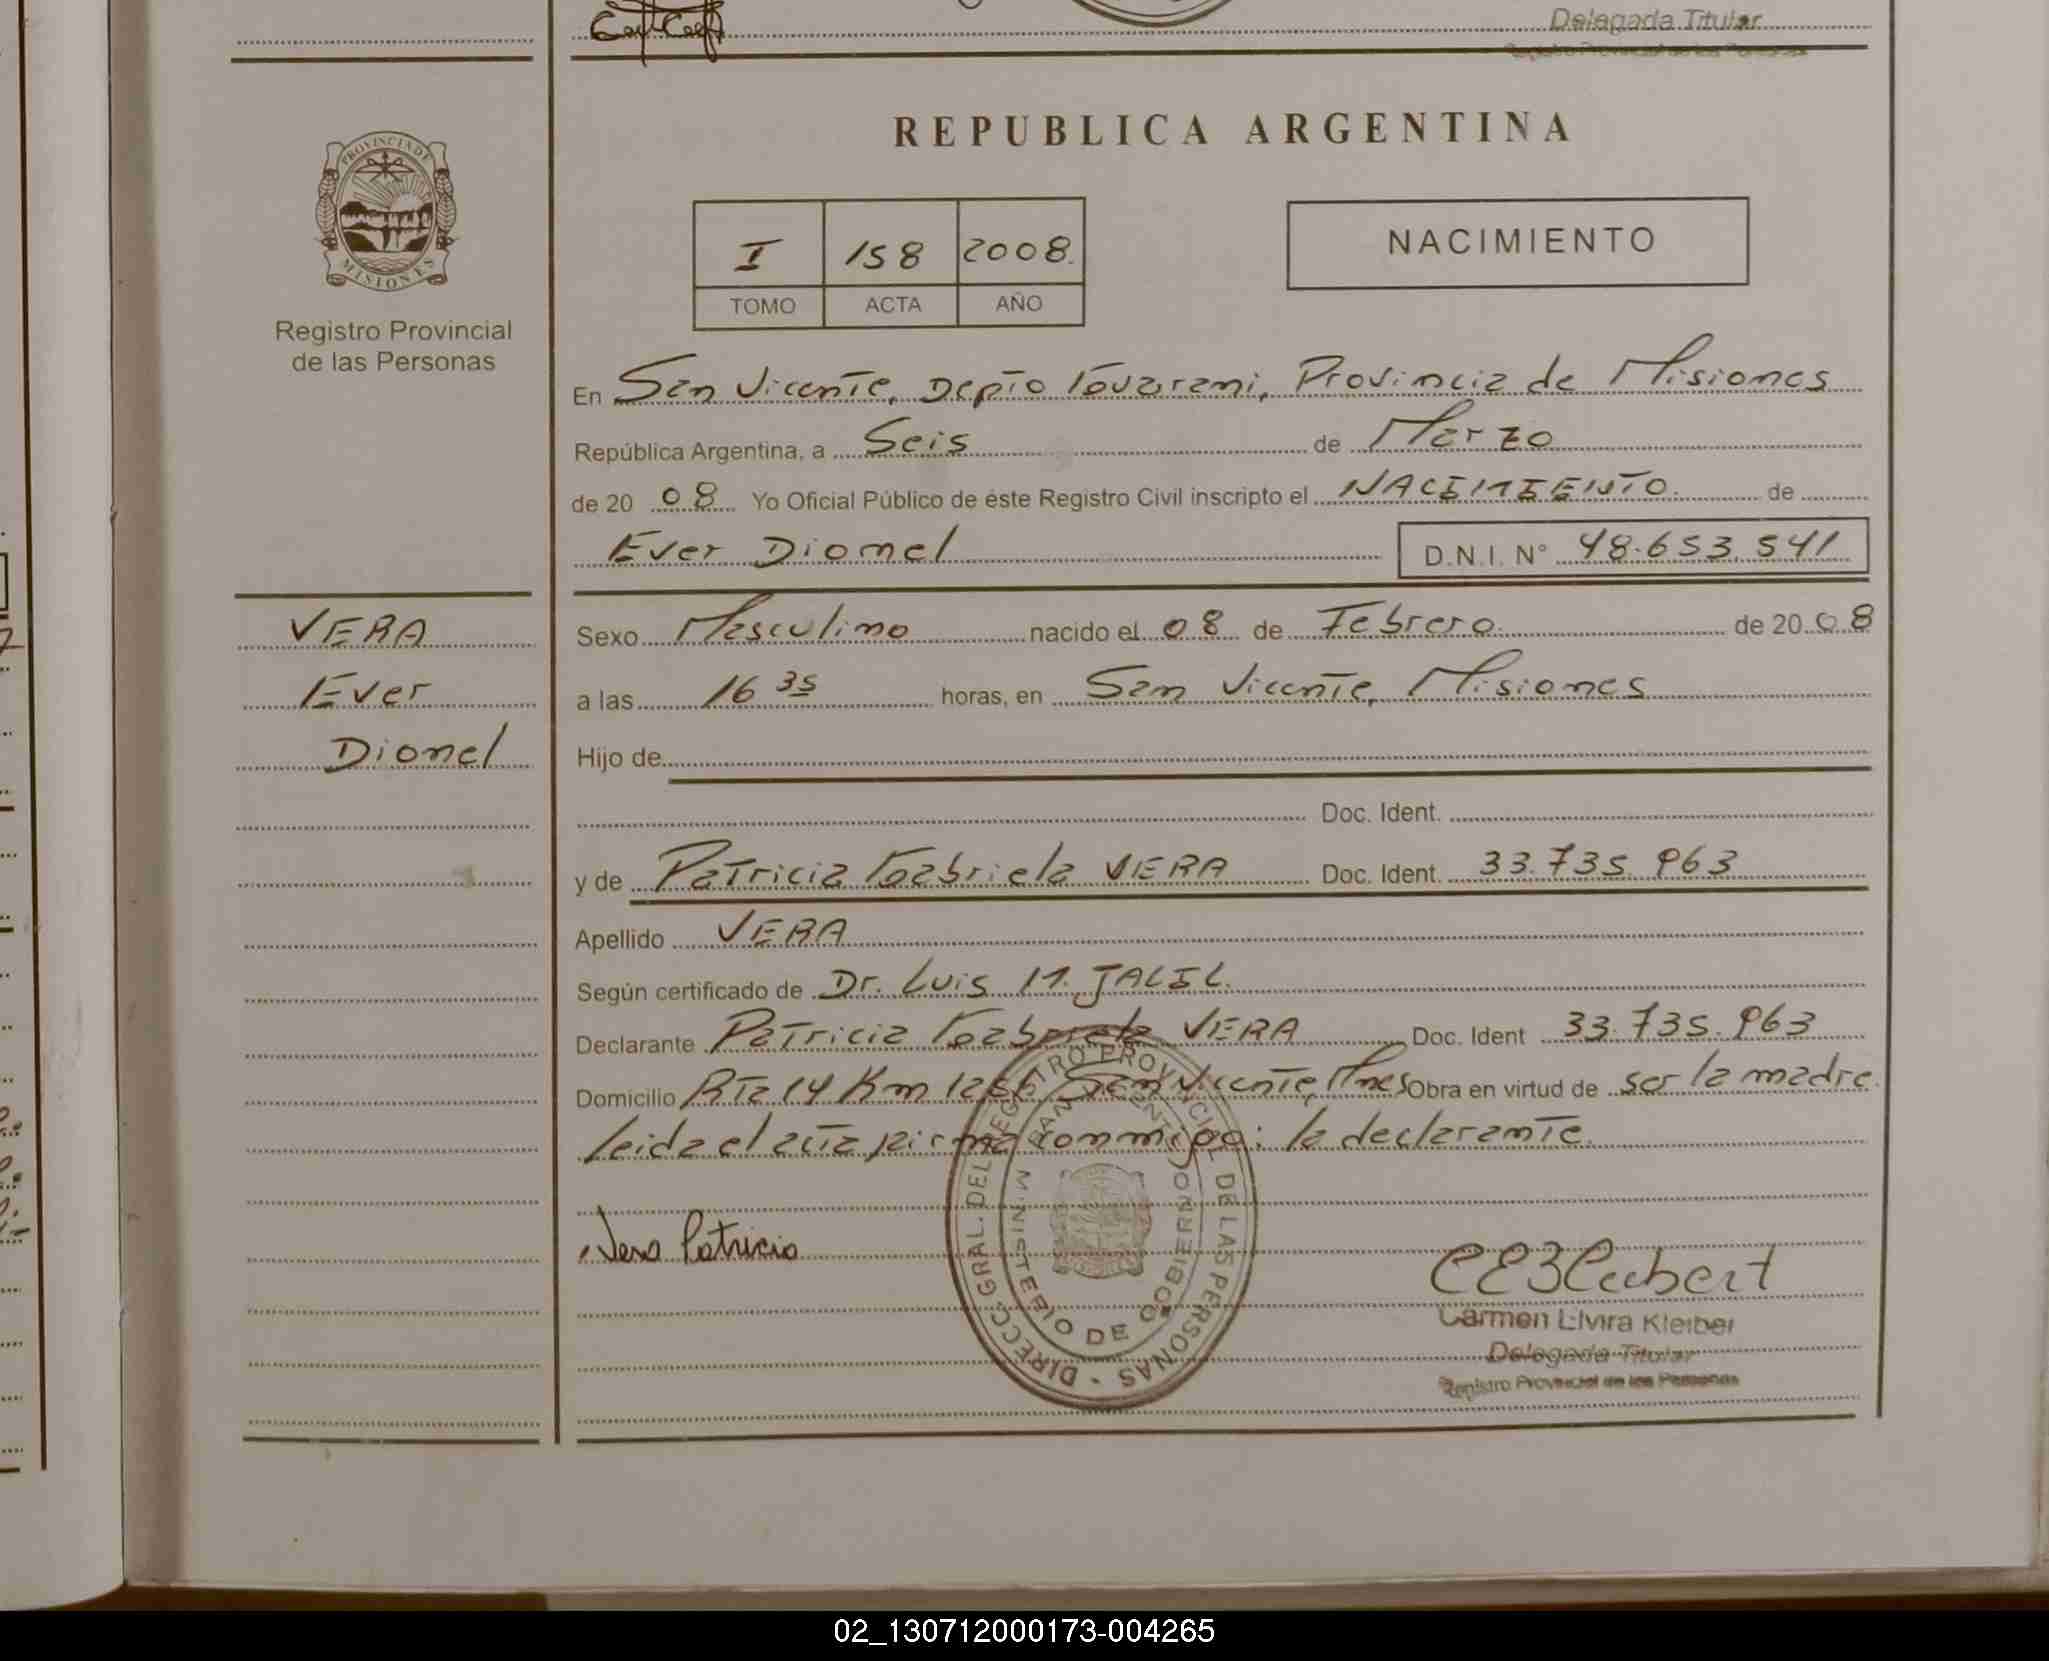 Delegada Titular
Registro Provincial de las Personas
PROVINCIA DE
MISIONES
Registro Provincial
de las Personas
REPUBLICA ARGENTINA
I 158 2008.
TOMO ACTA AÑO
NACIMIENTO
En San Vicente, Depto Guarani, Provincia de Misiones
República Argentina, a Seis de Marzo
de 20 08 Yo Oficial Público de este Registro Civil inscripto el NACIMIENTO. de
Ever Dionel D.N.I. N° 48.653.541
VERA
Ever
Dionel
Sexo Masculino nacido el 08 de Febrero de 20 08
a las 16 35 horas, en San Vicente, Misiones
Hijo de
Doc. Ident.
y de Patricia Gabriela VERA Doc. Ident. 33.735.963
Apellido VERA
Según certificado de Dr. Luis M. JALIL.
Declarante Patricia Gabriela VERA Doc. Ident 33.735.963
Domicilio Rta 14 Km 1256 San Vicente, Mnes Obra en virtud de ser la madre.
leida el acta firma conmigo: la declarante.
Vera Patricia
DIRECC. GRAL. DEL REGISTRO PROVINCIAL DE LAS PERSONAS
MINISTERIO DE GOBIERNO
SAN VICENTE
Carmen Elvira Kleiber
Delegada Titular
Registro Provincial de las Personas
02_130712000173-004265